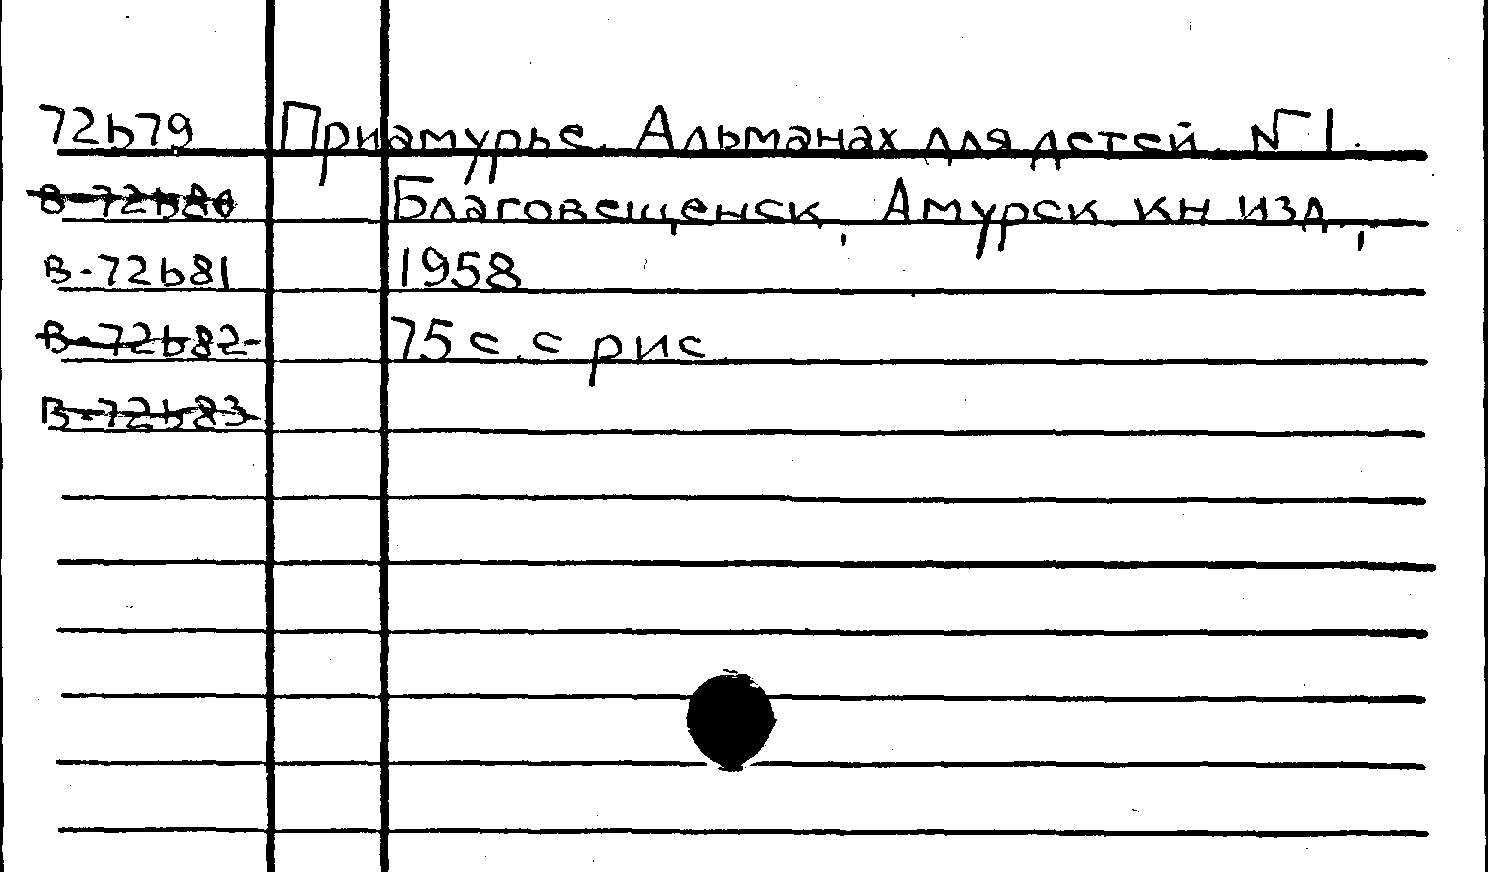 72b79 Приамурье. Альманах для детей. № 1.
в-72b80 Благовещенск, Амурск кн изд,
в-72b81 1958
в-72b82 75 с. с рис
в-72b83